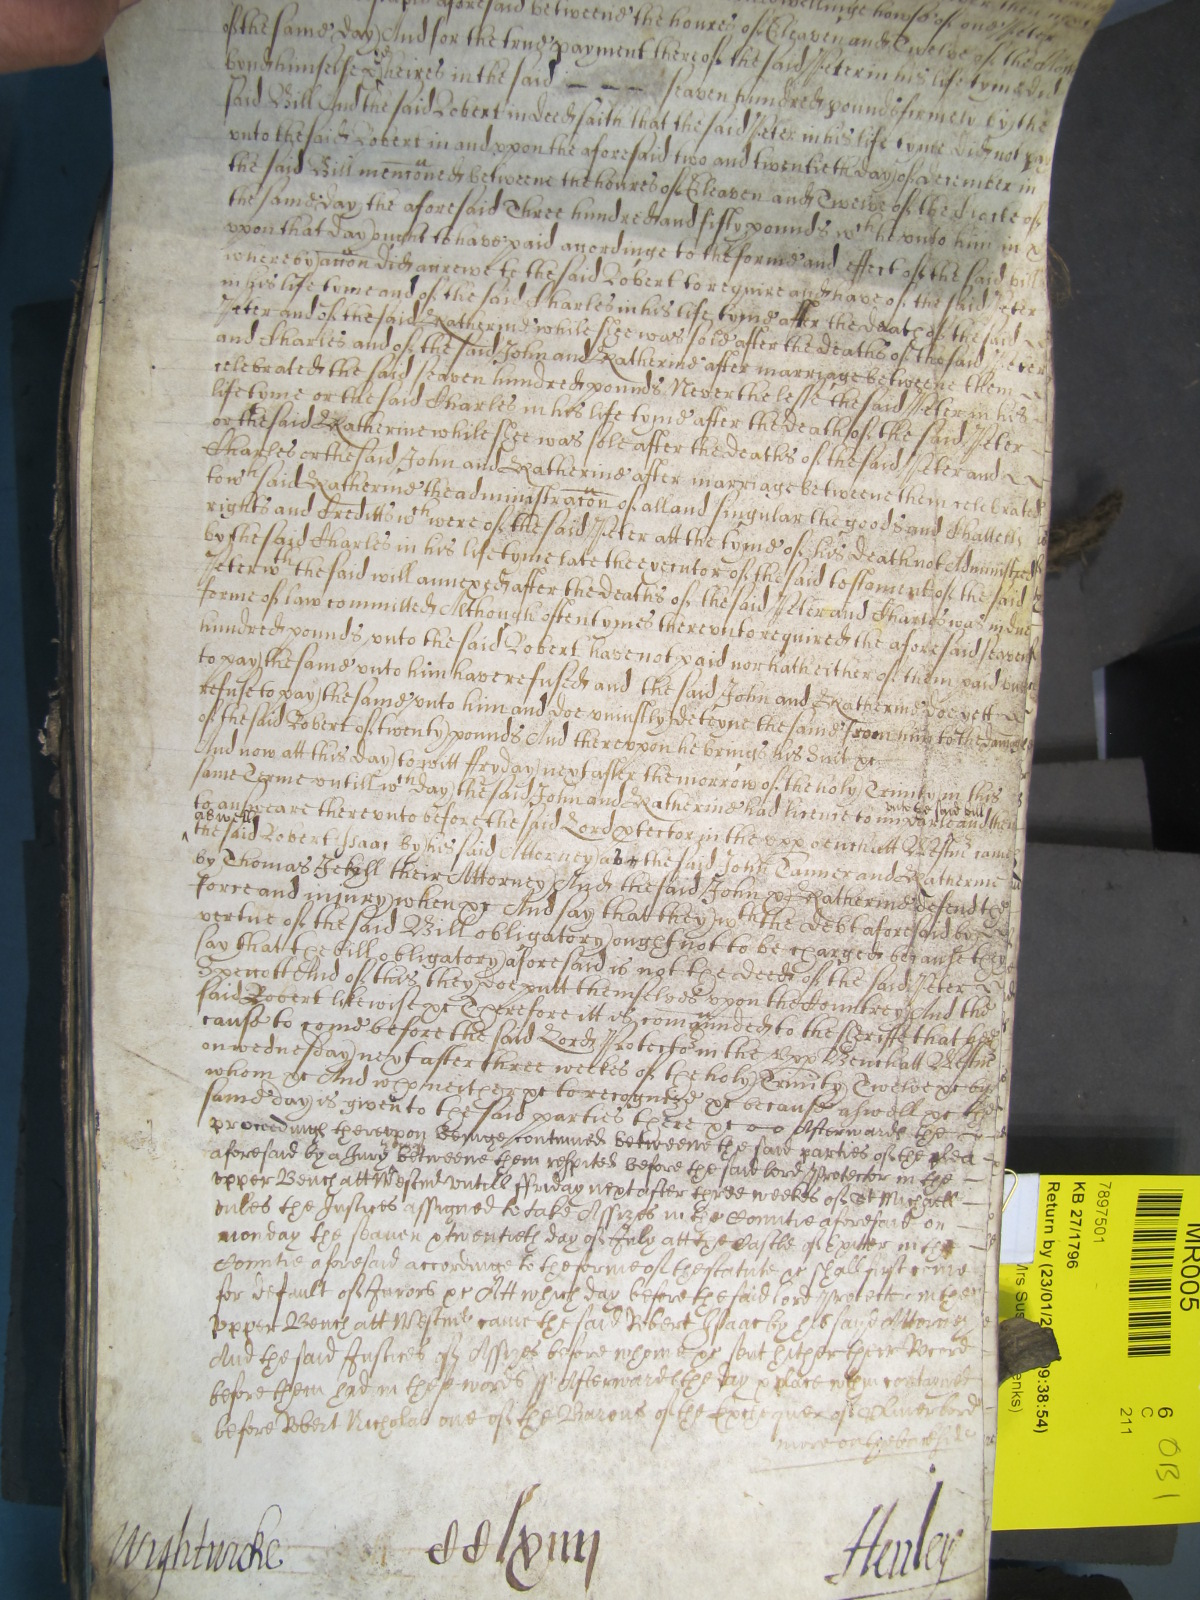 of the same day And for the true payment thereof the said Peter in his life tyme did
bynd himselfe & his heires in the said — — — seaven hundred pounds firmely by the
said Bill And the said Robert in deed saith that the said Peter in his life tyme did not pay
unto the said Robert in and uppon the aforesaid two and twentieth day of December in
the said Bill menconed betweene the houres of Eleaven and Twelve of the Clocke of
the same day the aforesaid Three hundred and fifty pounds wch he unto him in &
uppon that day ought to have paid accordinge to the forme and effect of the said bill
whereby accon did accrewe to the said Robert to require and have of the said Peter
in his life tyme and of the said Charles in his life tyme after the death of the said
Peter and of the said Katherine while shee was sole after the deaths of the said Peter
and Charles and of the said John and Katherine after marriage betweene them
celebrated the said seaven hundred pounds Neverthelesse the said Peter in his
life tyme or the said Charles in his life tyme after the death of the said Peter
or the said Katherine while shee was sole after the deaths of the said Peter and
Charles or the said John and Katherine after marriage betweene them celebrated
to wch said Katherine the administracon of all and singular the goods and Chattells
rights and Creditts wch were of the said Peter att the tyme of his death not Administred
by the said Charles in his life tyme late the executor of the said testament of the said
Peter wth the said will annexed after the deaths of the said Peter and Charles was in due
forme of law committed Although oftentymes thereunto required the aforesaid seaven
hundred pounds unto the said Robert have not paid nor hath either of them paid
to pay the same unto him have refused and the said John and Katherine doe yett
refuse to pay the same unto him and doe uniustly deteyne the same from him to the damage
of the said Robert of twenty pounds And thereuppon he brings his suit &c
And now att this day to witt ffryday next after the morrow of the holy Trinity in this
same Terme untill wch day the said John and Katherine had licence to imparle and then
unto the said bill
to answeare thereunto before the said Lord Protector in the upper bench att Westmr came
as well
the said Robert Isaac by his said Attorney as the said John Tanner and Katherine
by Thomas Jekyll their Attorney And the said John & Katherine defend the
force and iniury when &c And say that they wth the debt aforesaid by
vertue of the said Bill obligatory ought not to be charged because they
say that the bill obligatory aforesaid is not the deede of the said Peter
And of this they doe putt themselves uppon the Countrey And the
said Robert likewise &c Therefore itt is comaunded to the sheriffe that hee
cause to come before the said Lord Protector in the Upper Bench att Westmr
on wednesday next after three weekes of the holy Trinity Twelve &c by
whom &c And who neither &c to recognize &c because aswell &c the
same day is given to the said parties there &c Afterwards the
proceedings thereuppon beinge continued betweene the said parties of the plea
aforesaid by a Jury betweene them respited before the said lord Protector in the
upper Bench att Westmr untill ffriday next after three weekes of St Michaell
unles the Justices assigned to take Assizes in the Countie aforesaid on
monday the seaven & twentieth day of July att the Castle of Exitter in the
Countie aforesaid accordinge to the forme of the statute &c shall first come
for default of Jurors &c Att which day before the said lord Protector in the
upper Bench att Westmr came the said Robert Isaac by his sayd Attorney
And the said Justices of Assizes before whome &c sent hither their Record
before them had in these words ss Afterwards the day & place within contayned
before Robert Nicholas one of the Barons of the Exchequer of
more on the backside
Wightwicke
cclxiiii
Henley
MR005
7897501
KB 27/1796
Return by (23/01/2 09:38:54)
Mrs Sus enks)
6
C
211
OB1